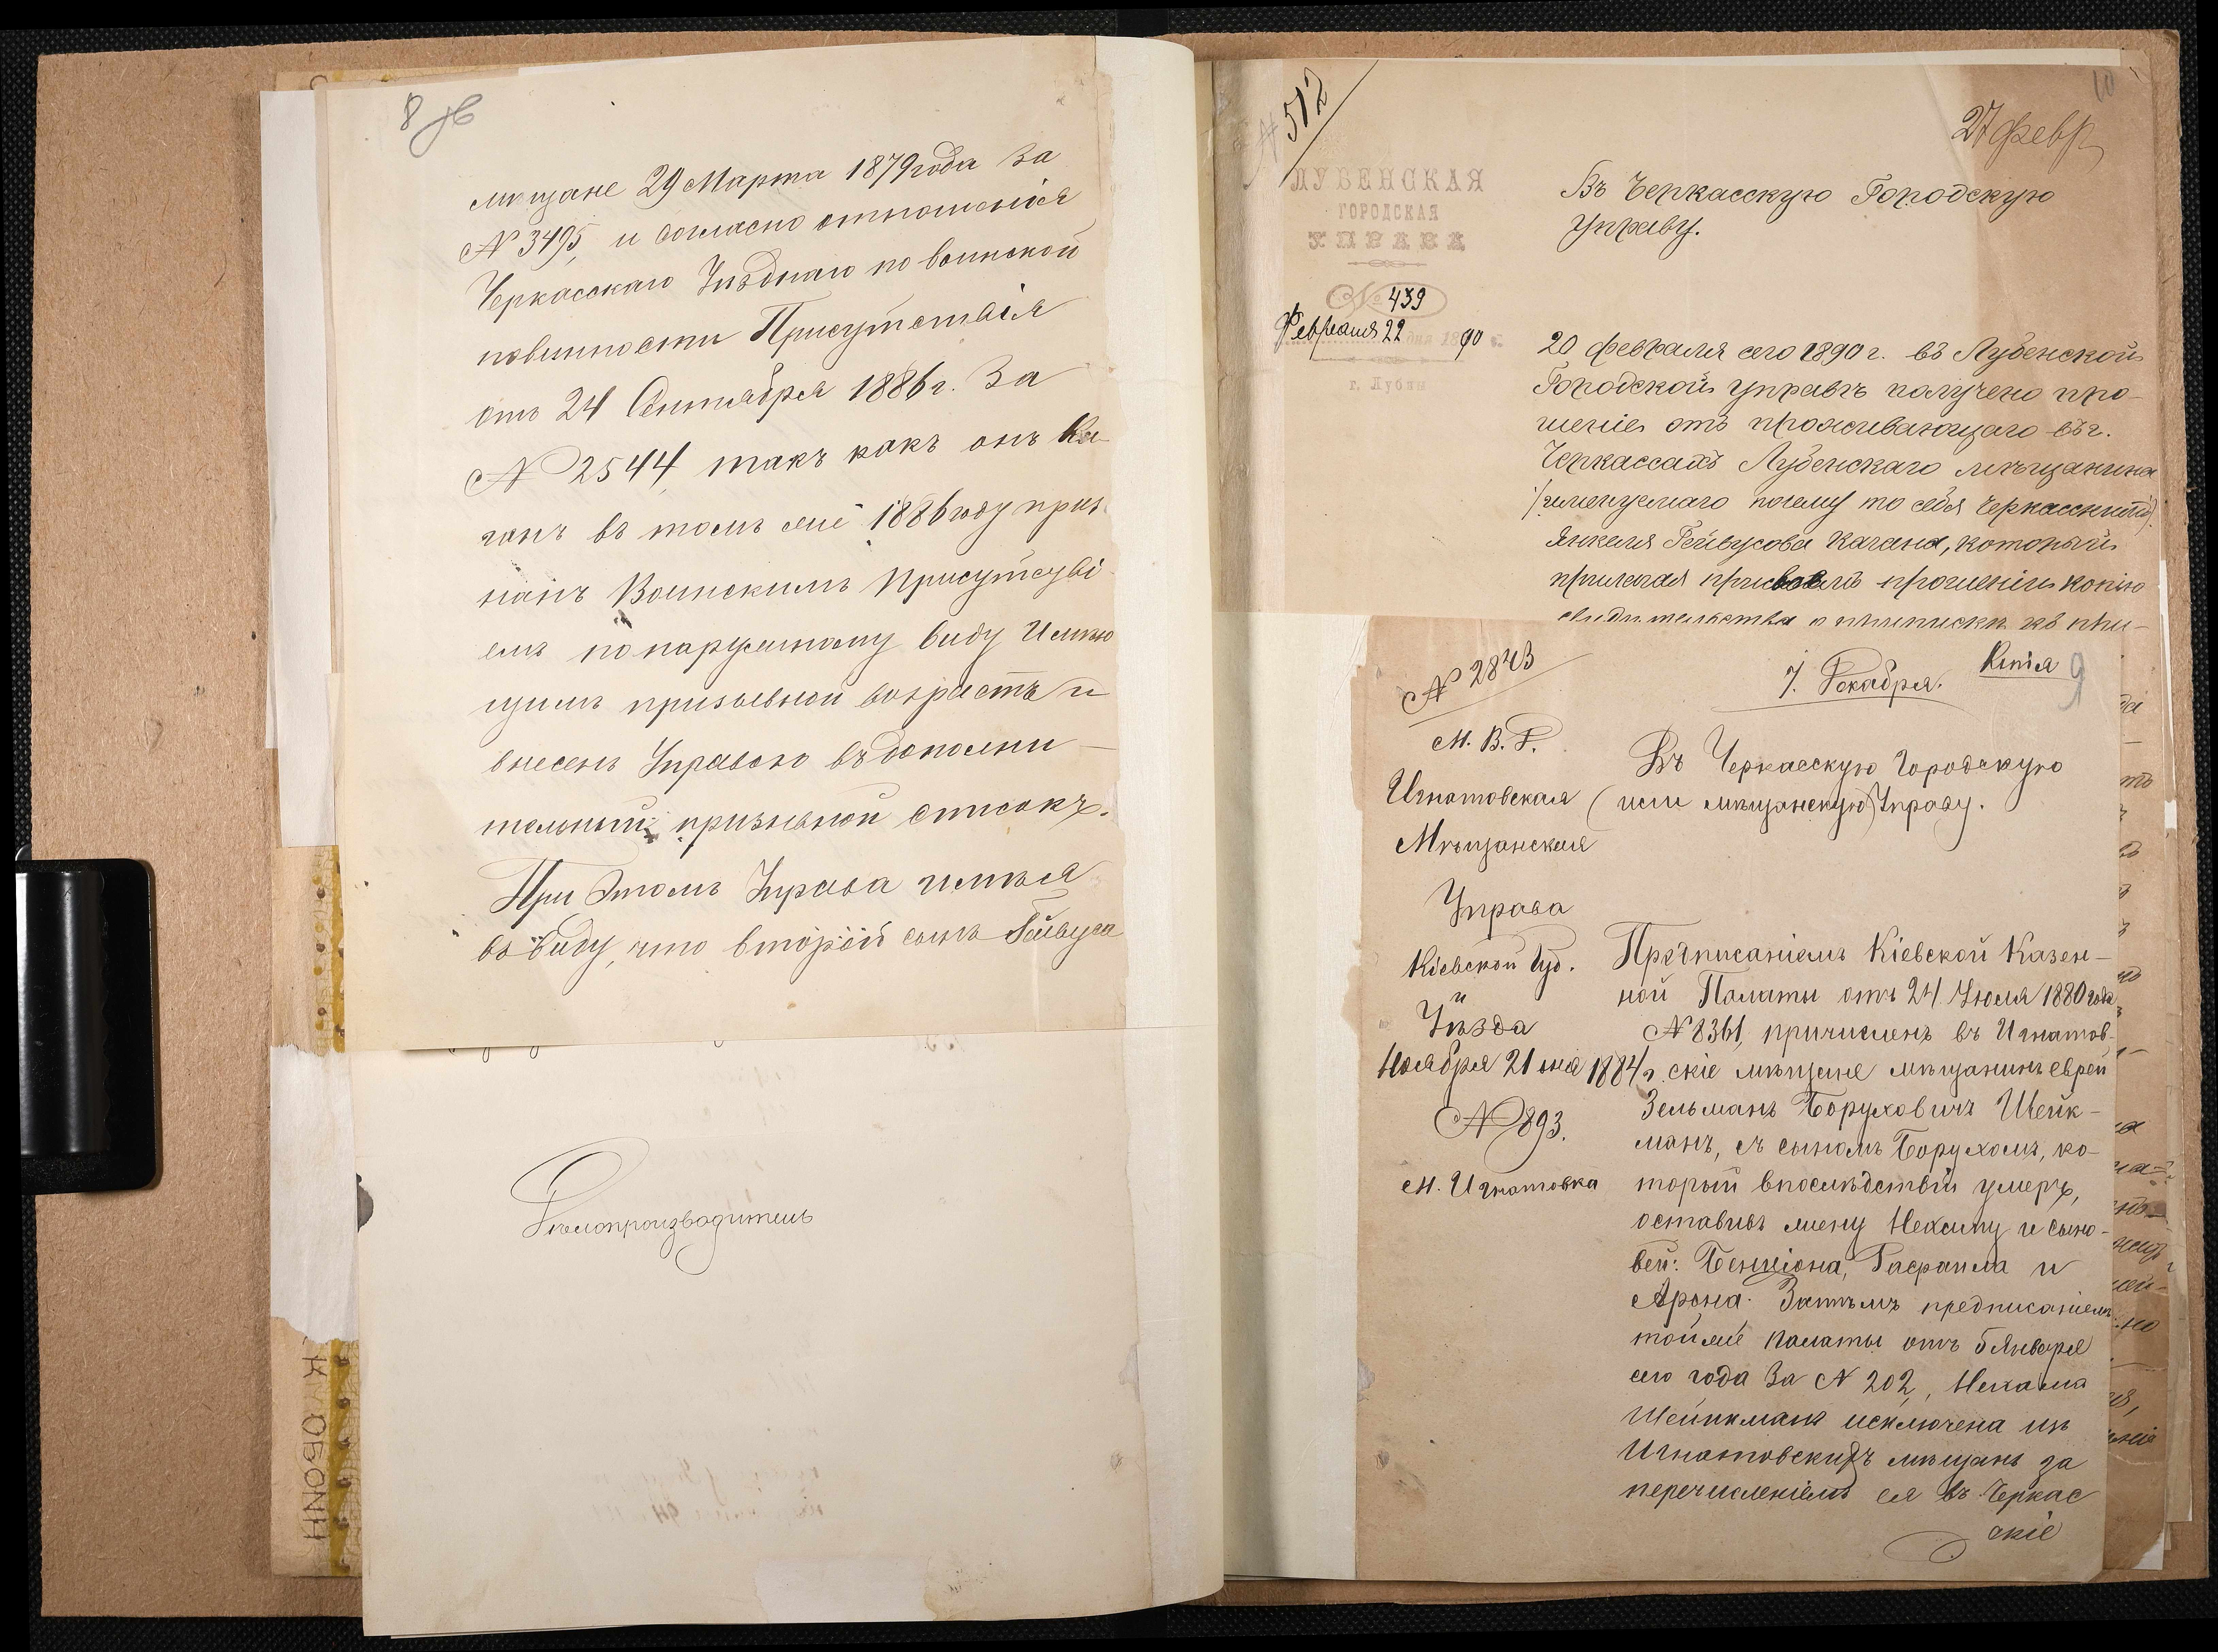 8 об
мѣщане 29 Марта 1879 года за
№ 3495, и согласно отношенія
Черкасскаго Уѣзднаго по воинской
повинности Присутствія
отъ 24 Сентября 1886 г. за
№ 2544, такъ какъ онъ Ка-
ганъ въ томъ же 1886 году приз
нанъ Воинскимъ Присутстві
емъ по наружному виду Имѣю
щимъ призывной возрастъ и
внесенъ Управою въ дополни-
тельный призывной списокъ.
При этомъ Управа имѣя
въ виду, что второй сынъ Гейвуса
Дѣлопроизводитель
К ОБОЛН
10
№ 512
27 февр
ЛУБЕНСКАЯ
ГОРОДСКАЯ
УПРАВА
№ 439
Февраля 22 дня 1890 г.
г. Лубны
Въ Черкасскую Городскую
Управу.
20 февраля сего 1890 г. въ Лубенской
Городской управѣ получено про-
шеніе отъ проживающаго въ г.
Черкассахъ Лубенскаго мѣщанина
(именуемаго почему то себя Черкасскимъ)
Янкеля Гейвусова Кагана, который
прилагая при своемъ прошеніи копію
свидѣтельства о припискѣ къ при-
№ 2843
7. Декабря.
Копія 9
М. В. Д.
Игнатовская
Мѣщанская
Управа
Кіевской Губ.
и
Уѣзда
Ноября 21 дня 1884 г.
№ 893.
М. Игнатовка
Въ Черкасскую Городскую
(или мѣщанскую) Управу.
Предписаніемъ Кіевской Казен-
ной Палаты отъ 24 Іюля 1880 года
№ 8361, причисленъ въ Игнатов-
скіе мѣщане мѣщанинъ еврей
Зельманъ Боруховичъ Шейк-
манъ, съ сыномъ Борухомъ, ко-
торый впослѣдствіи умеръ,
оставивъ жену Нехаму и сыно-
вей: Бенціона, Гасраила и
Арона. Затѣмъ предписаніемъ
той же палаты отъ 5 Января
сего года за № 202, Нехама
Шейнкманъ исключена изъ
Игнатовскихъ мѣщанъ за
перечисленіемъ ея въ Черкас
скіе